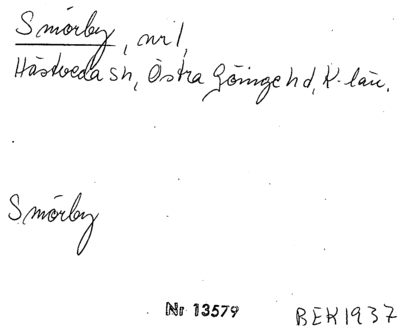 Smörby, nr 1,
Hästveda sn, Östra Göinge hd, K. län.
Smörby
Nr 13579
BEK1937